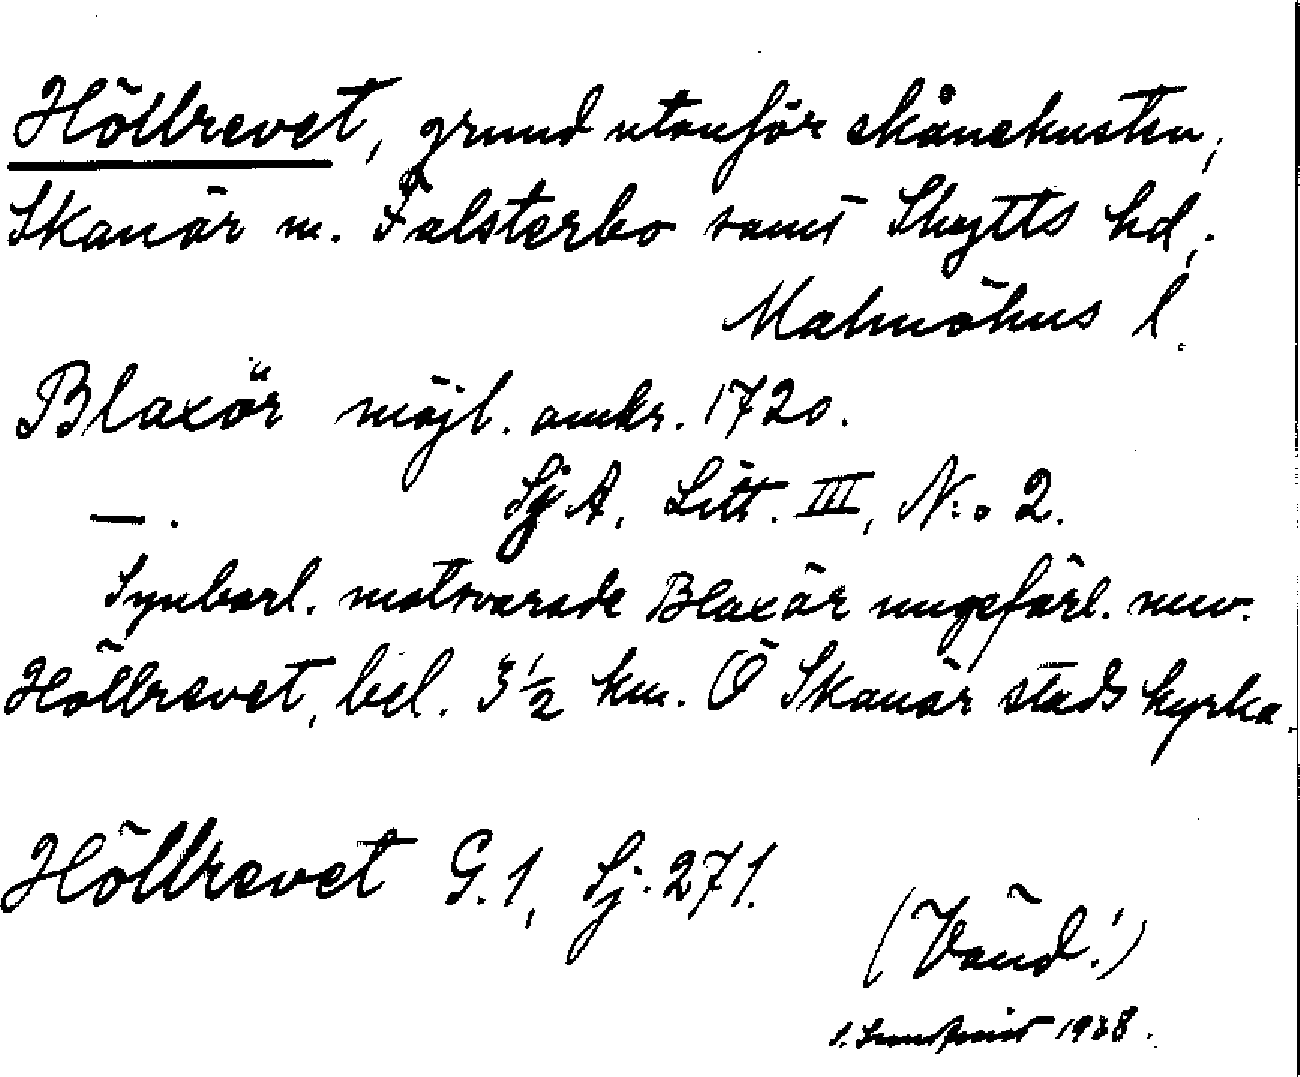 Höllrevet, grund utanför skånekusten,
Skanör m. Falsterbo samt Skytts hd,
Malmöhus l.
Blaxör möjl. omkr. 1720.
—. SjA, Litt. III, N:o 2.
Synbarl. motsvarade Blaxör ungefärl. nuv.
Höllrevet, bel. 3 1/2 km. Ö Skanör stads kyrka.
Höllrevet G. 1, Sj. 271.
(Vänd!)
1938.